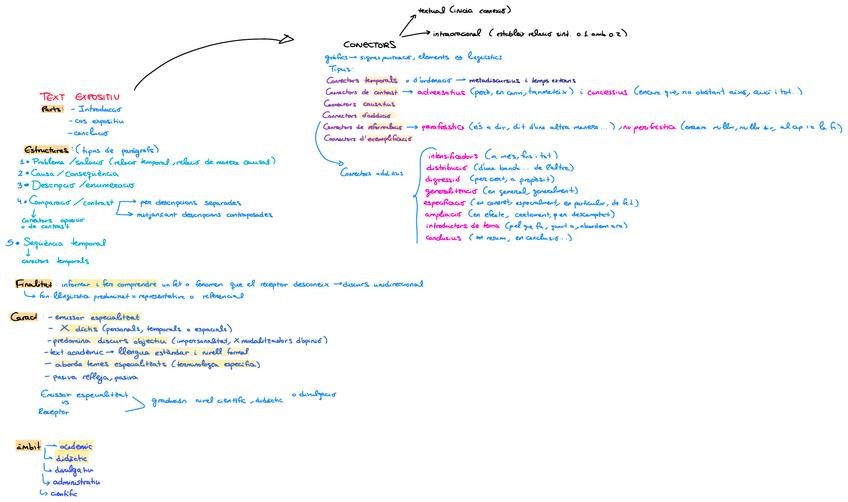 TEXT EXPOSITIU
Parts: - Introducció
- cos expositiu
- conclusió
Estructures: (tipus de paràgrafs)
1 • Problema / solució (relació temporal, relació de manera causal)
2 • Causa / conseqüència
3 • Descripció / enumeració
4 • Comparació / contrast → per descripcions separades
→ mitjançant descripcions contraposades
Conectors oposició
o de contrast
5 • Seqüència temporal
conectors temporals
Finalitat: informar i fer comprendre un fet o fenomen que el receptor desconeix → discurs unidireccional
↳ fun. llingüística predominat = representativa o referencial
Caract: - emissor especialitzat
- X díctis (personals, temporals o espacials)
- predomina discurs objectiu (impersonalitat, X modalitzadors d'opinió)
- text acadèmic → llengua estàndar i nivell formal
- aborda temes especialitzats (terminologia específica)
- pasiva refleja, pasiva
Emissor especialitzat
vs
Receptor
graduen nivel científic, didàctic o divulgatiu
àmbit → acadèmic
↳ didàctic
↳ divulgatiu
↳ administratiu
↳ científic
CONECTORS
textual (inicia conexió)
intraoracional (establix relació sint. O.1 amb O.2)
gràfics → signes puntuació, elements no lingüístics
Tipus:
Conectors temporals o d'ordenació → metadiscursius i temps externs
Conectors de contrast → adversatius (però, en canvi, tanmateix) i concessius (encara que, no obstant això, així i tot...)
Conectors causatius
Conectors d'addició
Conectors de reformulació → parafràstics (és a dir, dit d'una altra manera...), no perifràstics
Conectors d'exemplificació
Conectors additius
intensificadors (a més, fins i tot)
distribució (d'una banda... de l'altra)
digressió (per cert, a propòsit)
generalització (en general, generalment)
especificació (en concret, especialment, en particular, de fet)
ampliació (en efecte, certament, per descomptat)
introductors de tema (pel que fa, quant a, abordem ara)
conclusius (en resum, en conclusió...)